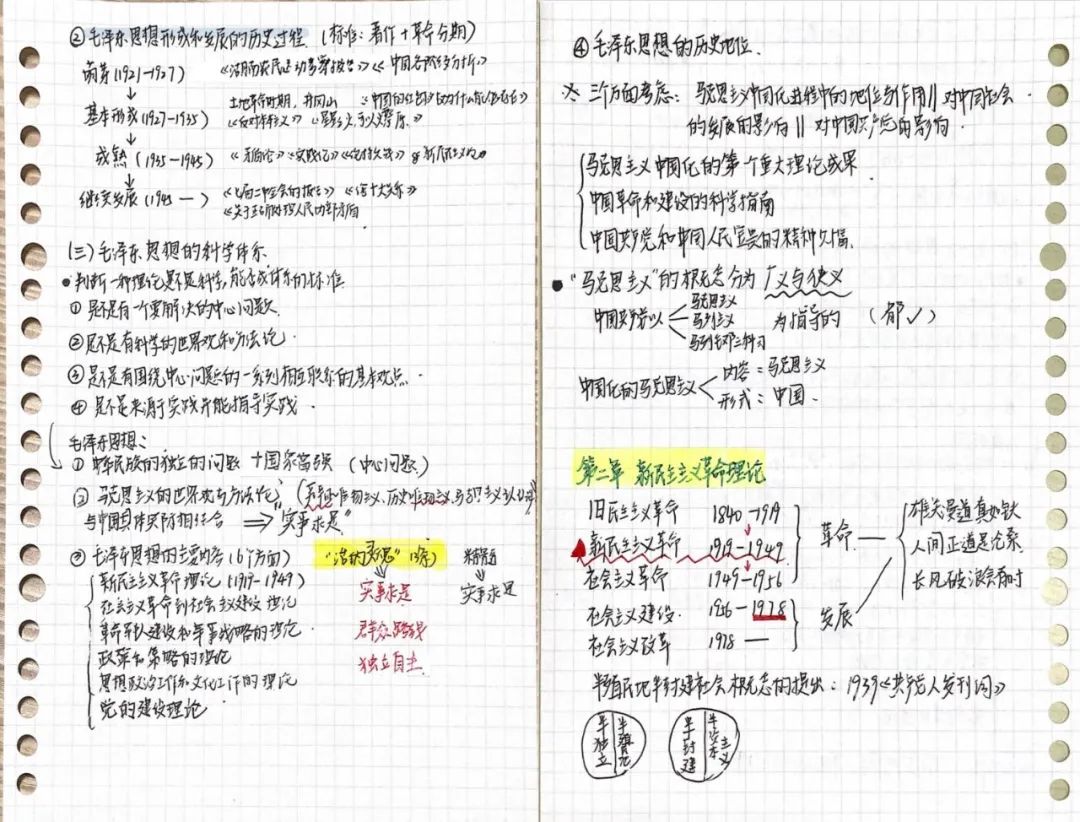 ②毛泽东思想形成和发展的历史过程.(标准:著作+革命分期)
萌芽(1921-1927) 《湖南农民运动考察报告》《中国各阶级分析》
土地革命时期,井冈山 《中国的红色政权为什么能够存在》
基本形成(1927-1935) 《反对本本主义》《星星之火,可以燎原》
成熟(1935-1945) 《矛盾论》《实践论》《论持久战》《新民主主义论》
继续发展(1945 — ) 《七届二中全会的报告》《论十大关系》
《关于正确处理人民内部矛盾》
(三)毛泽东思想的科学体系.
判断一种理论是不是科学,能否成体系的标准
①是不是有一个要解决的中心问题.
②是不是有科学的世界观和方法论.
③是不是有围绕中心问题的一系列相互联系的基本观点.
④是不是来源于实践并能指导实践.
毛泽东思想:
①中华民族的独立的问题+国家富强(中心问题)
②马克思主义的世界观和方法论,(辩证唯物主义,历史唯物主义
与中国具体实际相结合 ⇒ "实事求是"
③毛泽东思想的主要内容(6个方面) "活的灵魂"(3条) 精髓
新民主主义革命理论(1919-1949) 实事求是 实事求是
社会主义革命到社会主义建设理论
革命军队建设和军事战略的理论 群众路线
政策和策略的理论 独立自主
思想政治工作和文化工作的理论
党的建设理论.
④毛泽东思想的历史地位.
※ 三个方面考虑: 马克思主义中国化进程中的地位与作用 || 对中国社会
的发展的影响 || 对中国共产党的影响.
马克思主义中国化的第一个重大理论成果
中国革命和建设的科学指南
中国共产党和中国人民宝贵的精神财富.
"马克思主义"的概念分为广义与狭义
马克思主义
中国共产党以 马列主义 为指导的 (都✓)
马列毛邓三科习
中国化的马克思主义 内容=马克思主义
形式:中国.
第二章 新民主主义革命理论
旧民主主义革命 1840-1919
新民主主义革命 1919-1949
社会主义革命 1949-1956
社会主义建设. 1956-1978
社会主义改革 1978 —
革命 — 雄关漫道真如铁
人间正道是沧桑.
发展 长风破浪会有时
半殖民地半封建社会概念的提出:1939《共产党人发刊词》
半独立 半殖民 半封建 半资本主义